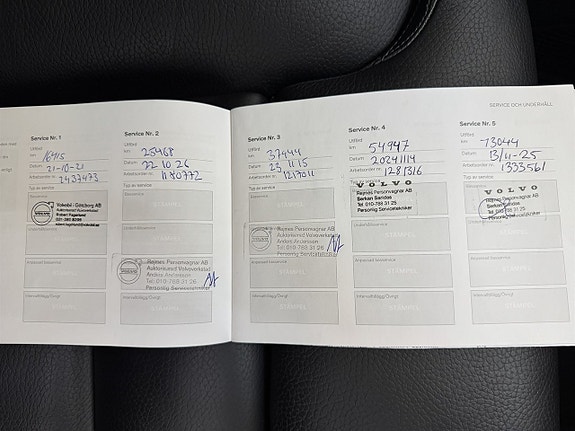 SERVICE OCH UNDERHÅLL
Service Nr. 1
Utförd
km
21-10-21
Arbetsorder nr.
2437473
Typ av service
VOLVO
Volvobil i Göteborg AB
Auktoriserad Volvoverkstad
STÄMPEL
Intervalltillägg/Övrigt
Service Nr. 2
Utförd
km 25468
22.10.26
Arbetsorder nr. 1180772
Typ av service
Basservice
Rejmes Personvagnar AB
Auktoriserad Volvoverkstad
Anders Andersson
Tel. 010-788 31 26
Personlig Servicetekniker
Intervalltillägg/Övrigt
STÄMPEL
Service Nr. 3
Utförd
km 37444
23 11 15
Arbetsorder nr. 1217011
Typ av service
Basservice
Rejmes Personvagnar AB
Auktoriserad Volvoverkstad
Anders Andersson
Tel. 010-788 31 26
Personlig Servicetekniker
Anpassad basservice
STÄMPEL
Intervalltillägg/Övrigt
STÄMPEL
Service Nr. 4
Utförd
km 54947
20241114
Arbetsorder nr. 1281316
Typ av service
VOLVO
Rejmes Personvagnar AB
Serkan Saridas
Tel. 010-788 31 25
Personlig Servicetekniker
Anpassad basservice
STÄMPEL
Intervalltillägg/Övrigt
STÄMPEL
Service Nr. 5
Utförd
km 73044
13/11-25
Arbetsorder nr. 1333561
Typ av service
VOLVO
Rejmes Personvagnar AB
Serkan Saridas
Tel. 010-788 31 25
Personlig Servicetekniker
Anpassad basservice
STÄMPEL
Intervalltillägg/Övrigt
STÄMPEL